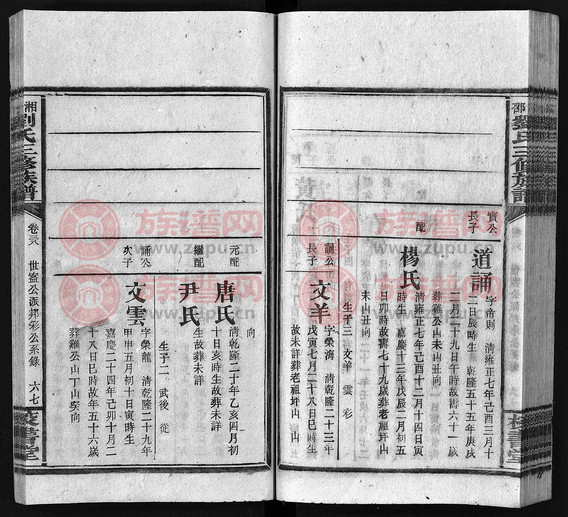 邵
劉氏三修族譜
實公
長子
道誦
字帝則 清雍正七年己酉三月十
二日辰時生 乾隆五十五年庚戌
二月二十九日午時故壽六十一歲
葬雞公山未山丑向
配
楊氏
清雍正七年己酉十二月十四日寅
時生 嘉慶十三年戊辰二月初五
日卯時故壽七十九歲葬老龍坪山
未山丑向
生子二 文羊 雲彩
誦公
長子
文羊
字榮海 清乾隆二十三年
戊寅七月二十八日巳時生
故未詳葬老龍坪山 山
向
元配
唐氏
清乾隆二十年乙亥四月初
十日亥時生故葬未詳
繼配
尹氏
生故葬未詳
生子二 武後 從
誦公
次子
文雲
字榮龍 清乾隆二十九年
甲申五月初十日寅時生
嘉慶二十四年己卯十月二
十八日巳時故年五十六歲
葬雞公山丁山癸向
湘
劉氏三修族譜
卷三八
世鑒公派邦彩公系錄
六七
族譜网
www.zupu.cn